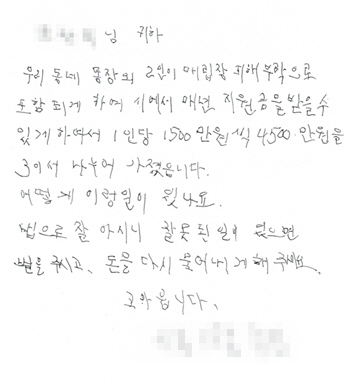 님 귀하
우리 동네 통장외 2인이 매립장 피해부락으로
포함되게 하여 시에서 매년 지원금을 받을수
있게하여서 1인당 1500만원씩 4500만원을
3이서 나누어 가졌읍니다.
어떻게 이렁일이 있나요.
법으로 잘 아시니 잘못된일이 있으면
벌을 주시고, 돈을 다시 물어내게 해 주세요.
고마웁니다.